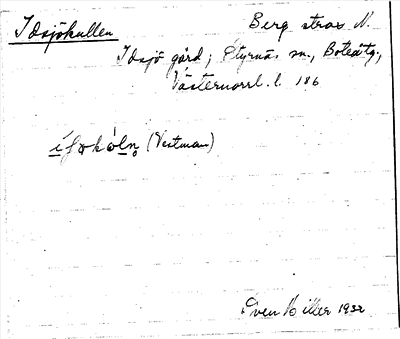 Idsjökullen Berg strax N.
Idsjö gård; Styrnäs sn., Boteåtg.,
Västernorrl. l. 186
(Vestman)
Sven Hiller 1932